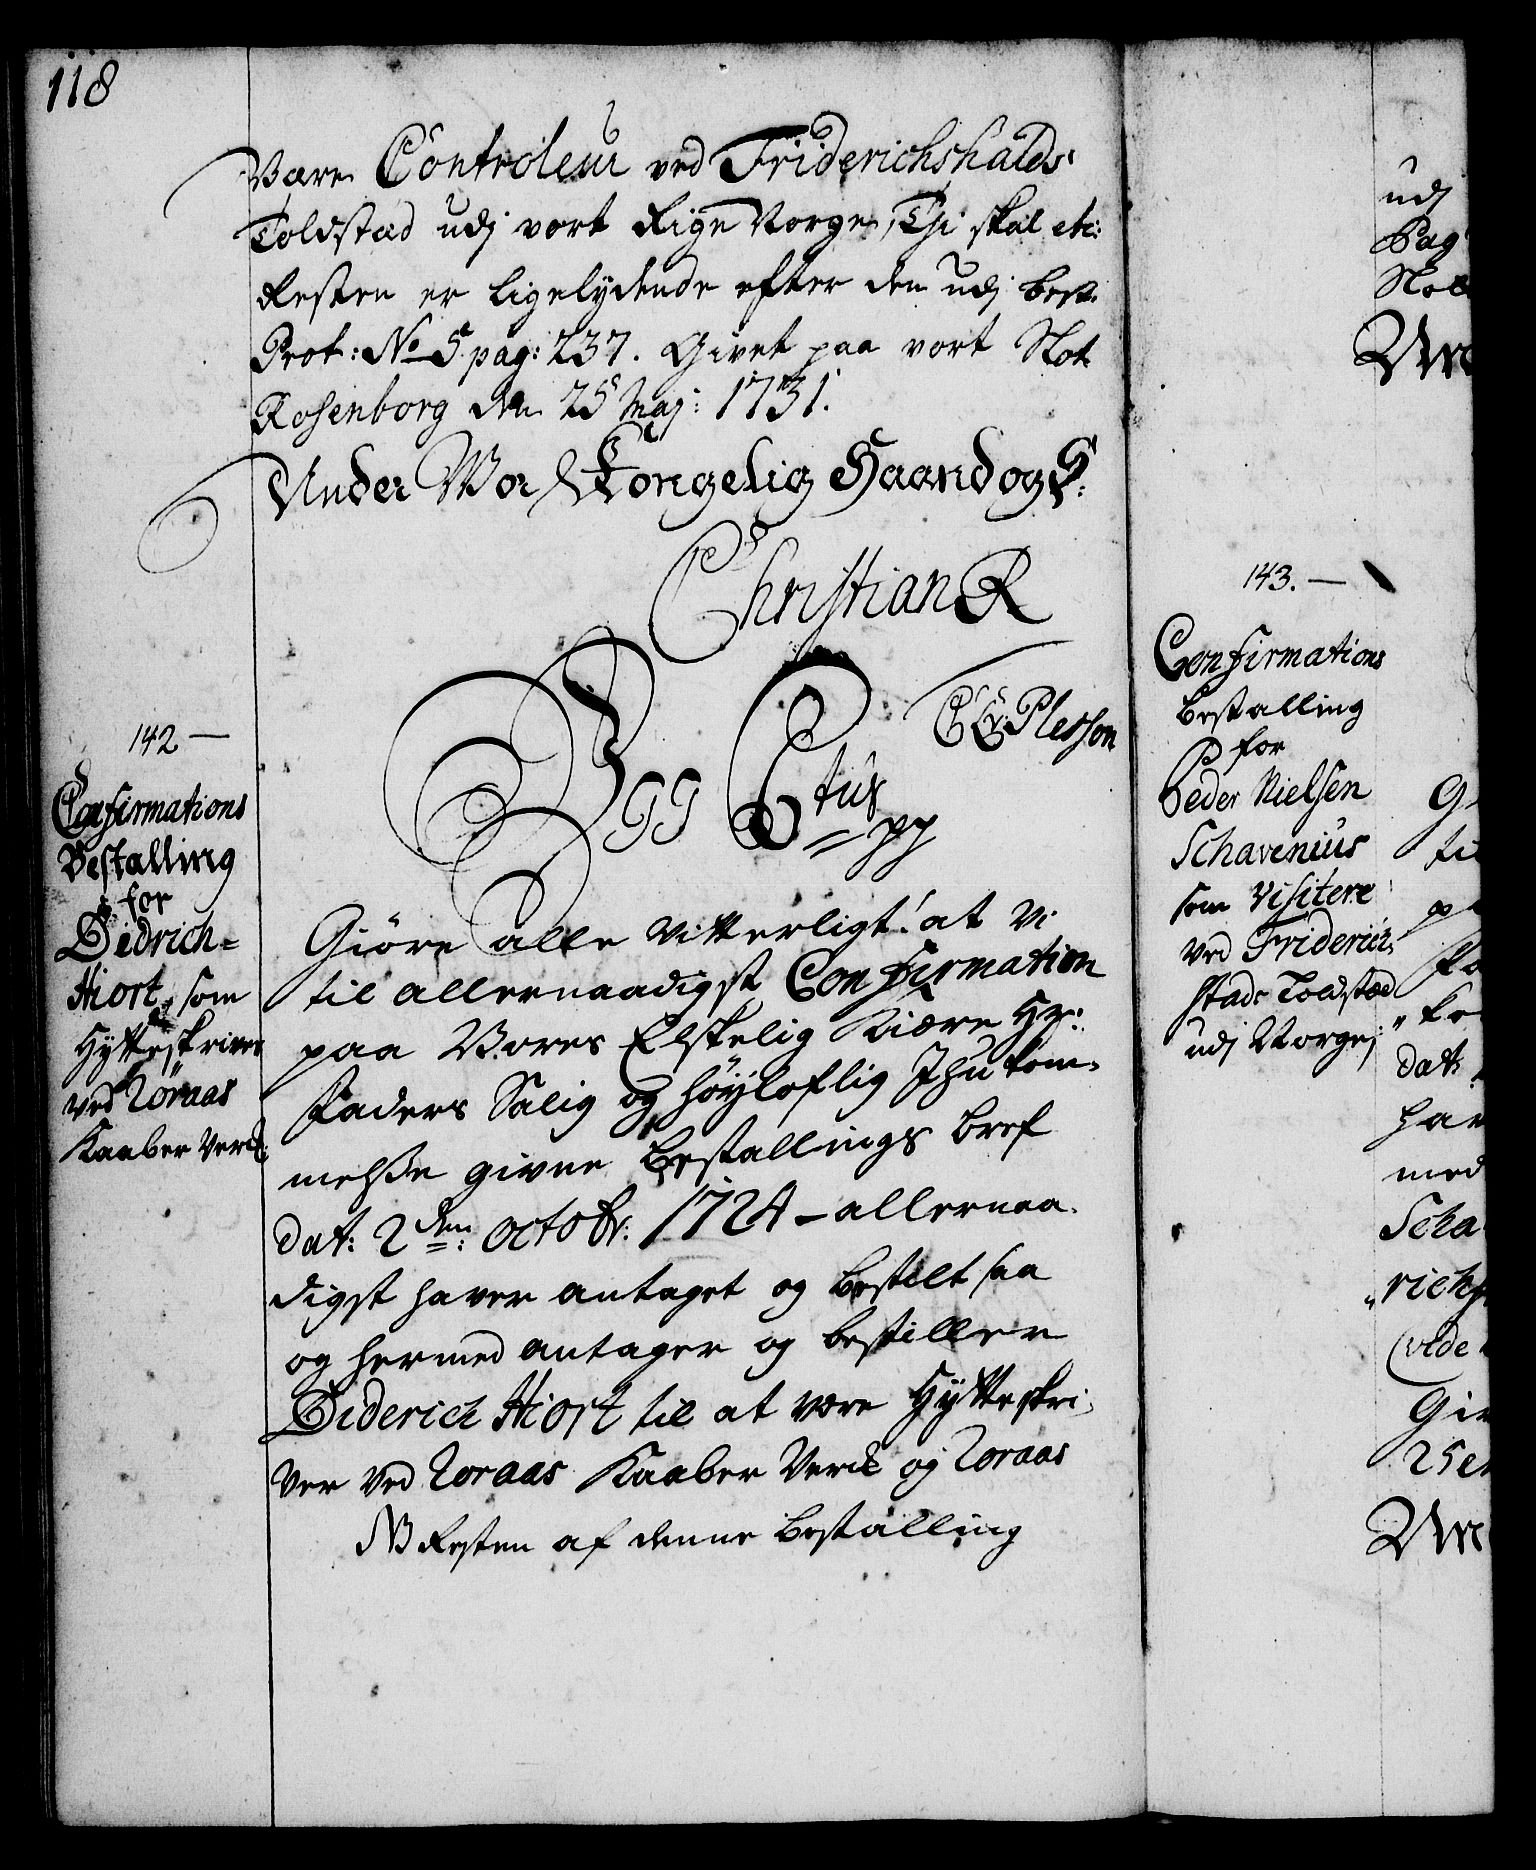 118
Være Controleur ved Friderichshalds
Toldsted udj vort Rige Norge, Thi skal etc:
Resten er ligelydende efter den udj best:
Prot: No 5. pag: 237. Givet paa vort Slot
Rosenborg den 25 Maj: 1731.
Under Vor Kongelig Haand og S:
Christian R
C A: Plessen
142 —
Confirmations
Bestalling
for
Didrich=
Hiort, som
Hytteskriver
ved Röraas
Kaaber Verk:
Vii C 6tus
pp
Giöre alle vitterligt: at Vi
til allernaadigst Confirmation
paa Vores Elskelig Kiære Hr:
Faders Salig og höyloflig Ihukom-
melsse givne Bestallings bref
dat: 2den: octobr: 1724 – allernaa-
digst haver antaget og bestilt saa
og hermed antager og bestiller
Diderich Hiort til at være Hytteskri-
ver ved Roraas Kaaber Verk og Roraas
NB Resten af denne bestalling
143. —
Confirmations
bestalling
for
Peder Nielsen
Schavenius
som Visitere
ved Friderich
stads Toldsted
udj Norge:
udj
Pag
Slot
Un
G
ti
pa
Fa
ko
dat:
har
med
Scha
rich
(vide
Giv
25 e
Un